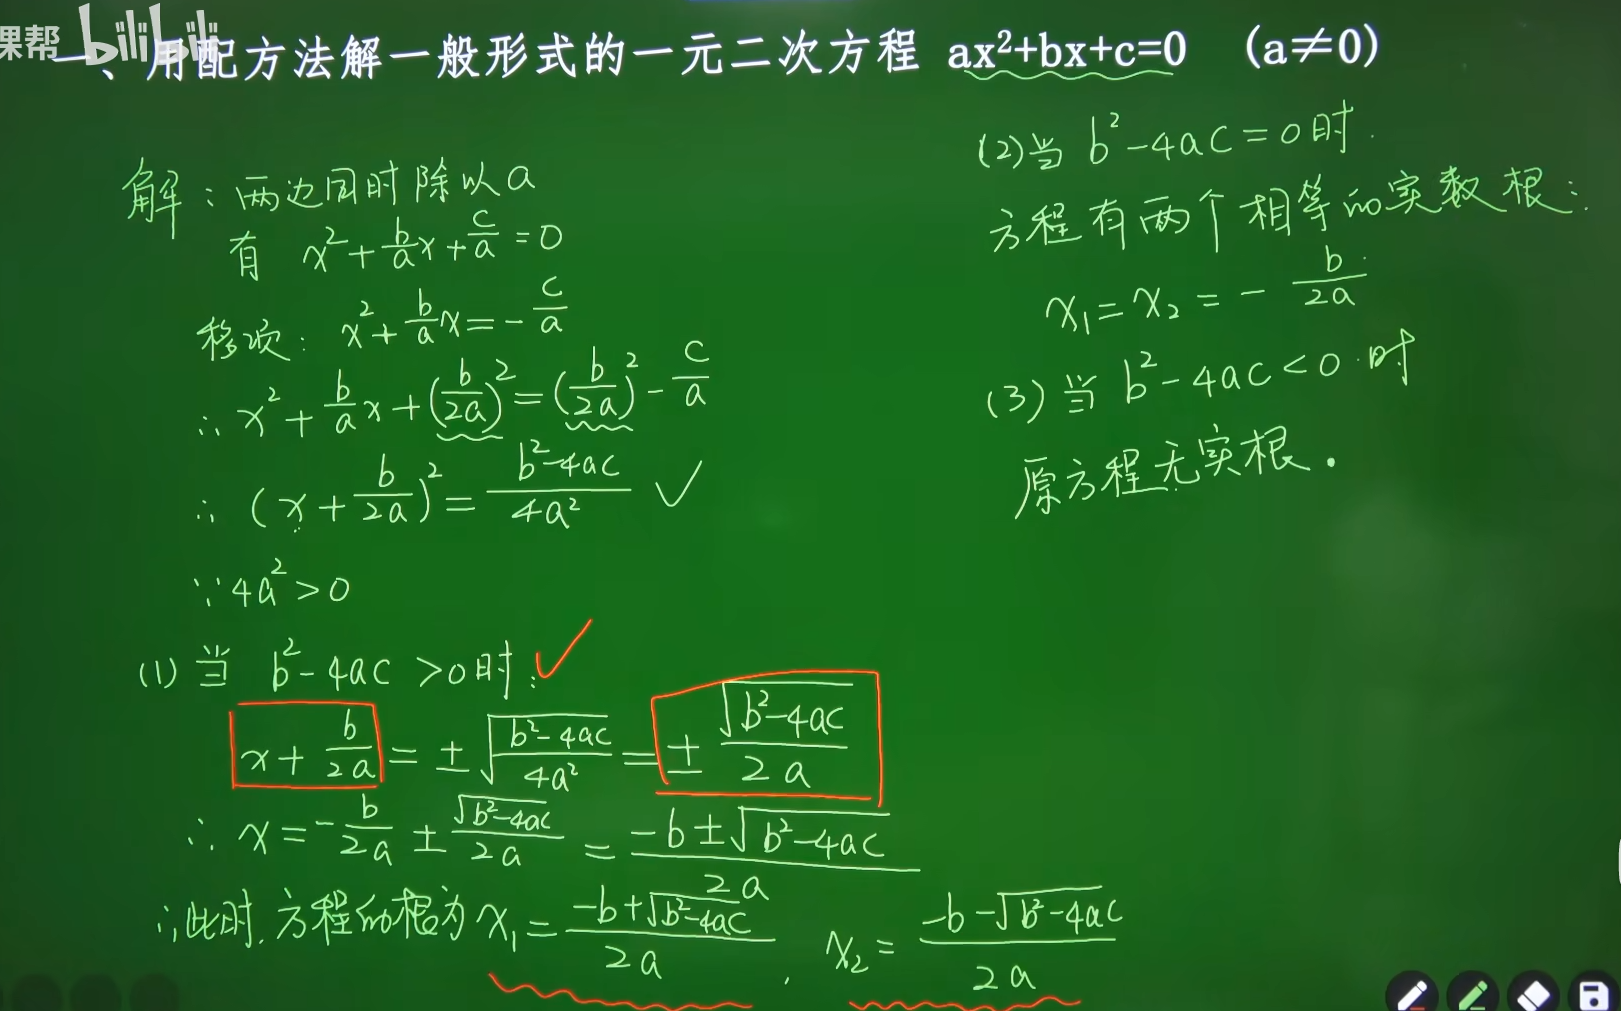 课帮 bilibili
一、用配方法解一般形式的一元二次方程 ax²+bx+c=0 (a≠0)
解：两边同时除以a
有 x²+b/a x+c/a=0
移项：x²+b/a x=-c/a
∴ x²+b/a x+(b/2a)²=(b/2a)²-c/a
∴ (x+b/2a)²=(b²-4ac)/4a² ✓
∵ 4a²>0
(1) 当 b²-4ac>0时： ✓
x+b/2a=±√((b²-4ac)/4a²)=±√(b²-4ac)/2a
∴ x=-b/2a±√(b²-4ac)/2a=(-b±√(b²-4ac))/2a
∴此时,方程的根为 x₁=(-b+√(b²-4ac))/2a, x₂=(-b-√(b²-4ac))/2a
(2)当 b²-4ac=0时.
方程有两个相等的实数根：
x₁=x₂=-b/2a
(3)当 b²-4ac<0时
原方程无实根.